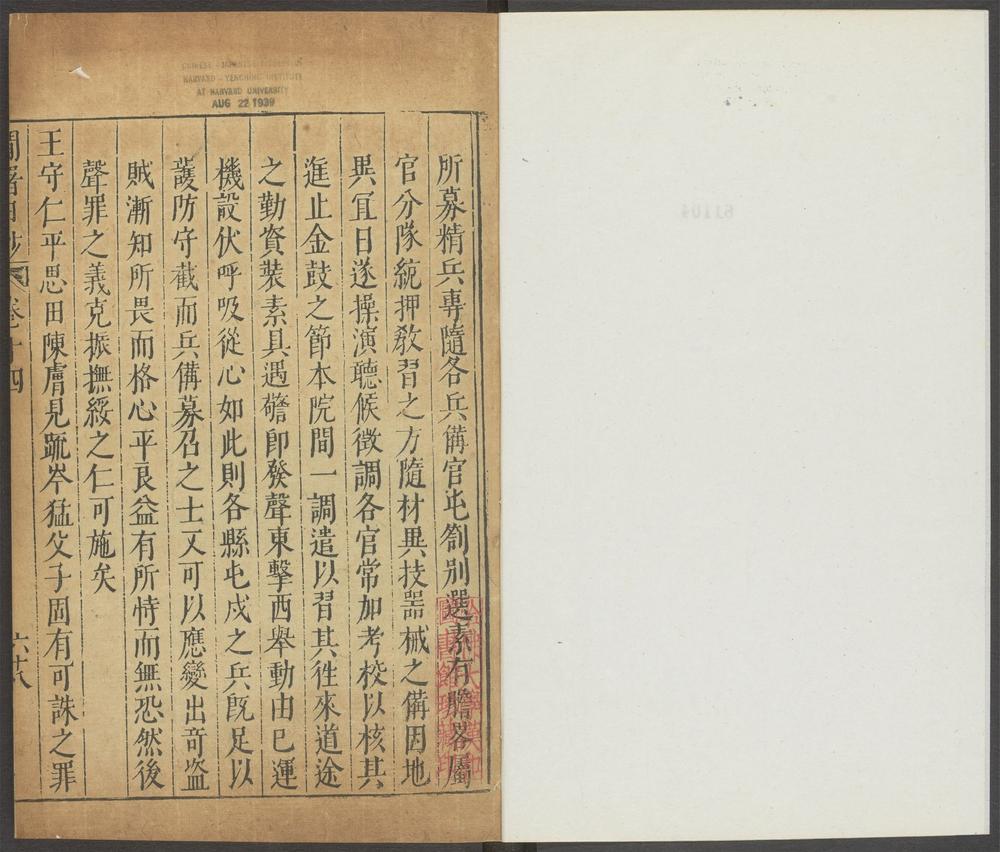 CHINESE - JAPANESE
HARVARD - YENCHING INSTITUTE
AT HARVARD UNIVERSITY
AUG 22 1939
所募精兵專隨各兵備官屯劄別選素有膽畧屬
官分隊統押教習之方隨材異技器械之備因地
異宜日逐操演聽候徵調各官常加考校以核其
進止金鼓之節本院間一調遣以習其徃來道途
之勤資裝素具遇警即發聲東擊西舉動由巳運
機設伏呼吸從心如此則各縣屯戍之兵既足以
護防守截而兵備募召之士又可以應變出奇盗
賊漸知所畏而格心平良益有所恃而無恐然後
聲罪之義克振撫綏之仁可施矣
王守仁平思田陳膚見疏岑猛父子固有可誅之罪
卷十四
六十八
61104